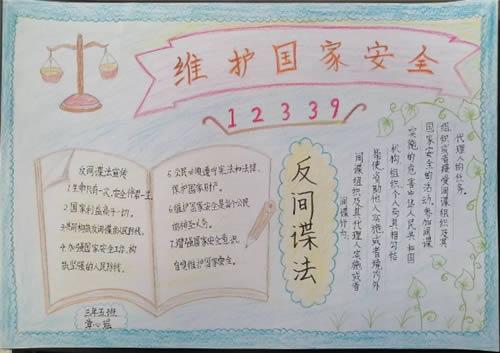 维护国家安全
12339
反间谍法宣传
1.生命只有一次,安全伴君一生。
2.国家利益高于一切。
3.共同构筑反间谍的人民防线。
4.加强国家安全工作,构
筑坚强的人民防线。
6.公民必须遵守宪法和法律,
保护国家财产。
6.维护国家安全是每个公民
的神圣义务。
7.增强国家安全意识,
自觉维护国家安全。
反间谍法
间谍行为
间谍组织及其代理人实施或者
指使、资助他人实施或者境内外
机构、组织、个人与其相勾结
实施的危害中华人民共和国
国家安全的活动。参加间谍
组织或者接受间谍组织及其
代理人的任务。
三年五班